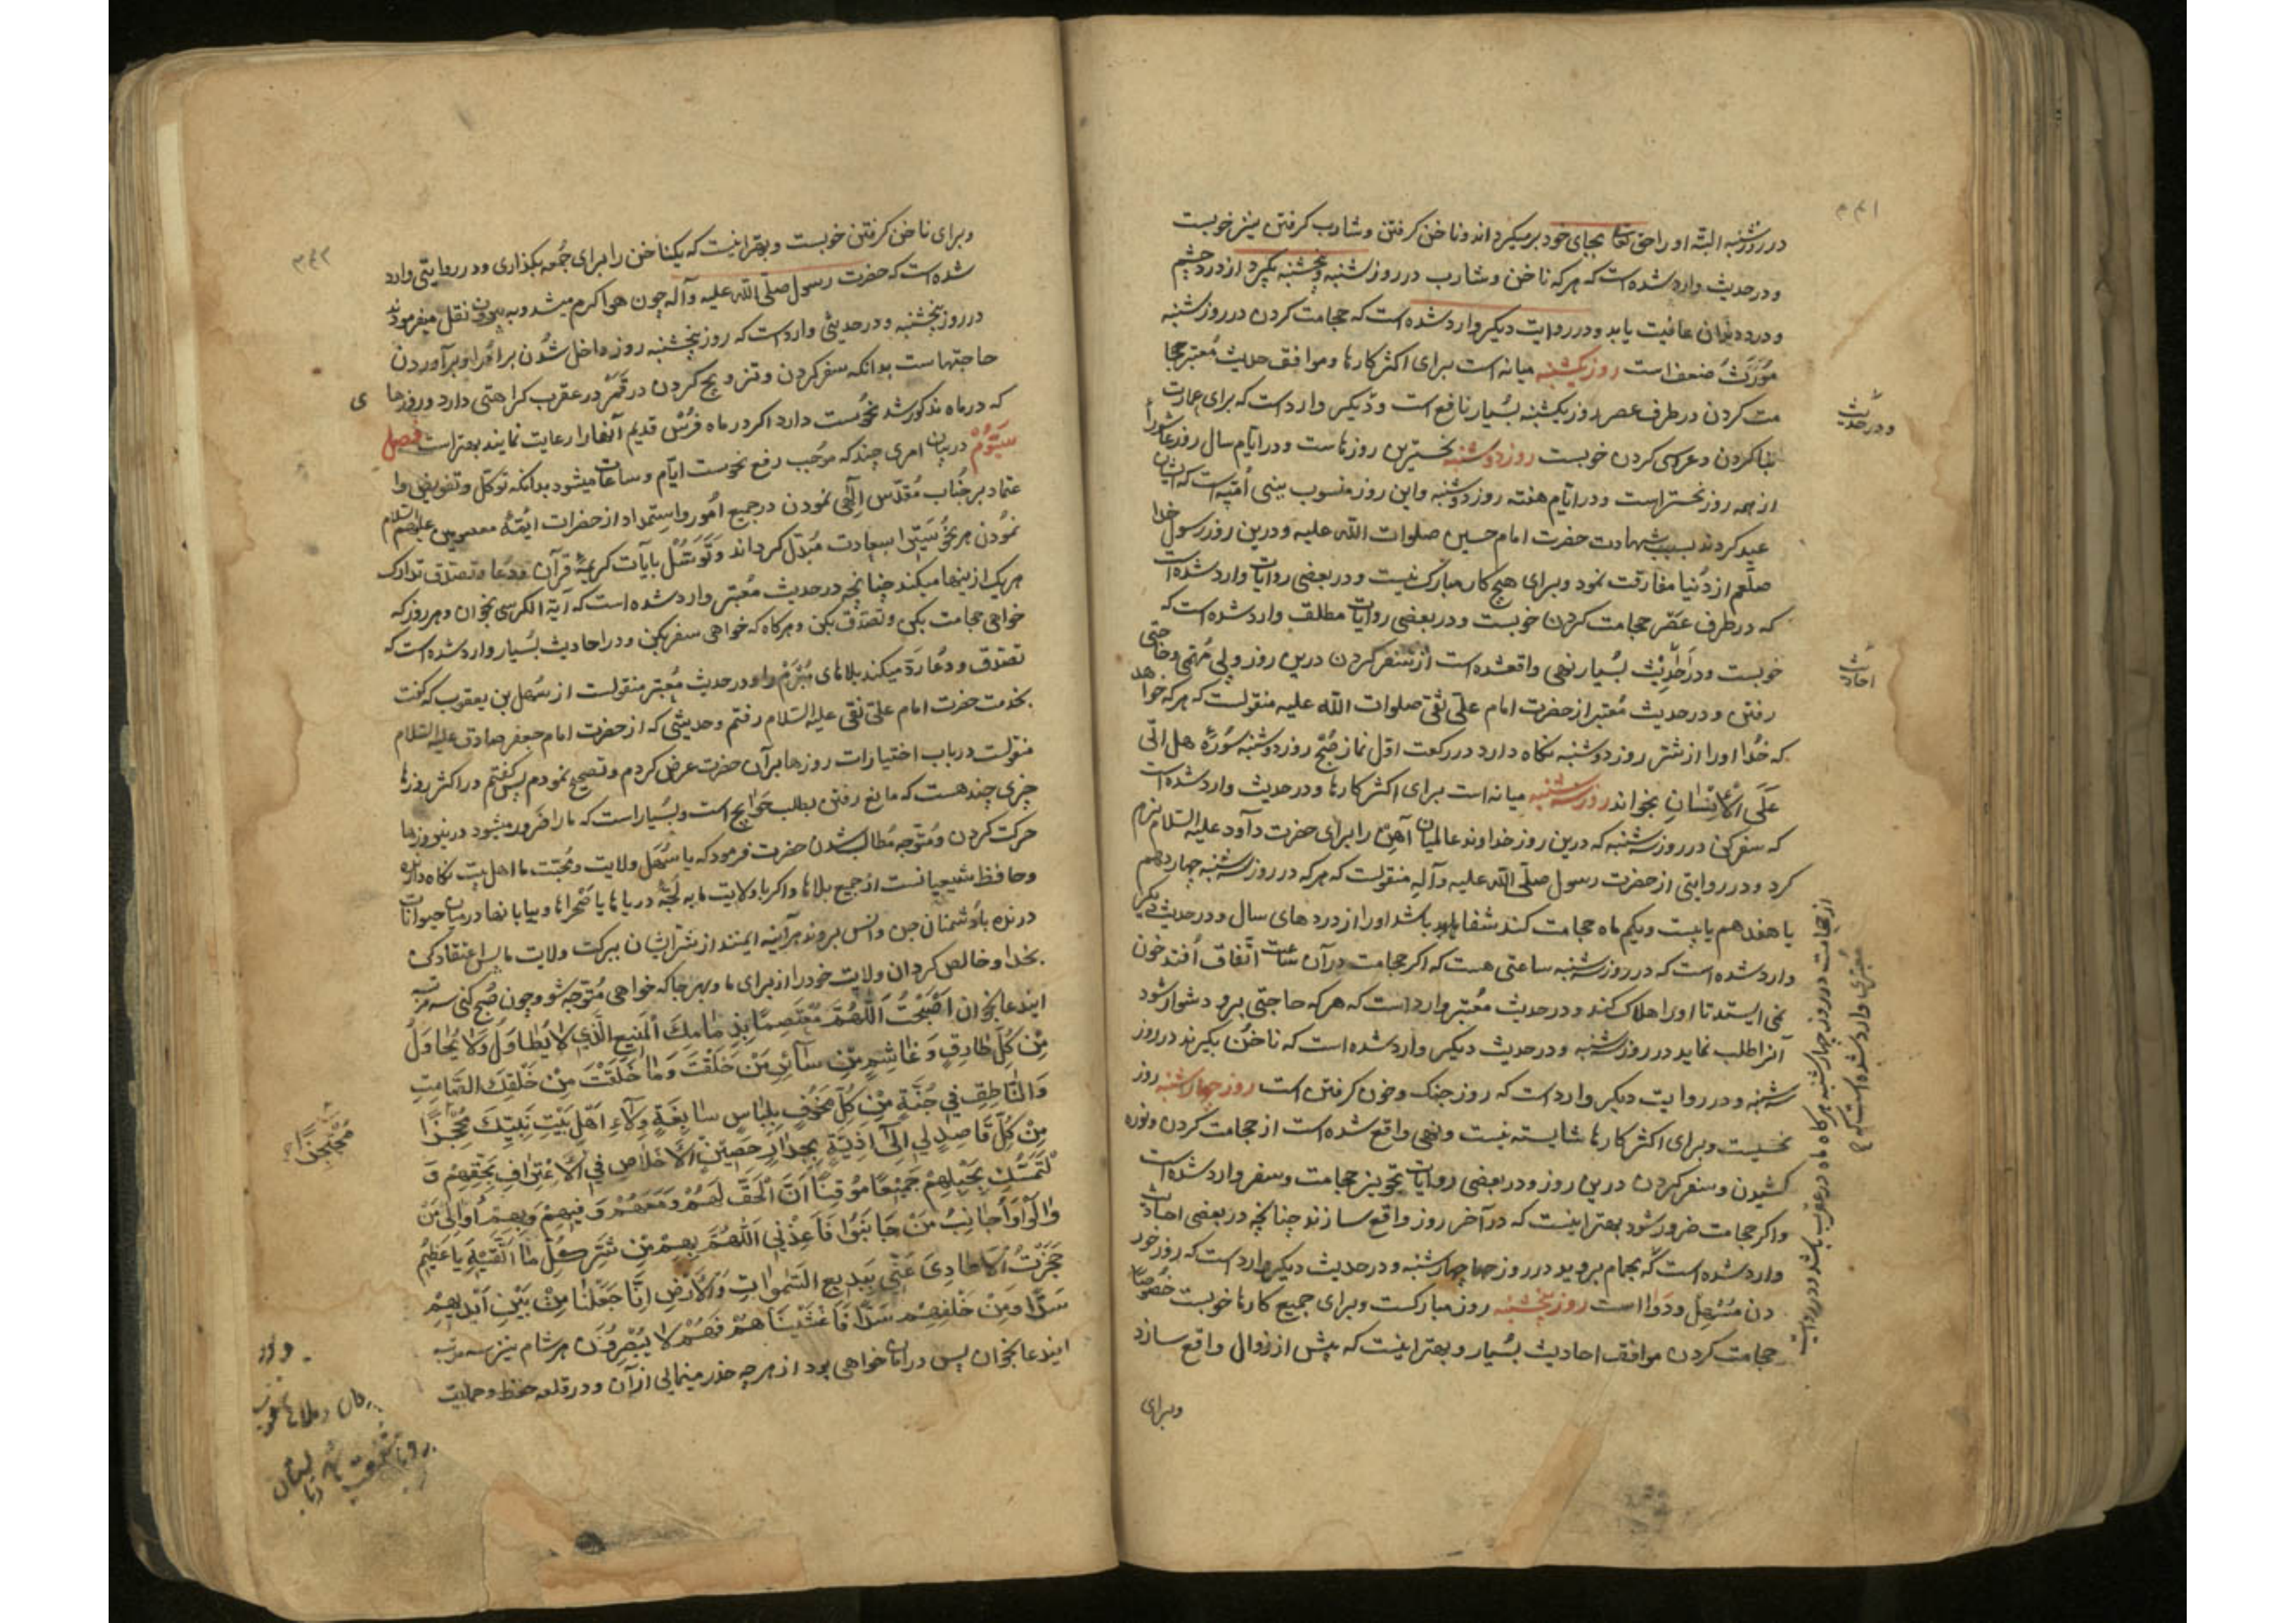 ۳۴۱
در روز شنبه البته او را حق تعالی بجای خود برمیکرداند و ناخن کرفتن و شارب کرفتن نیز خوبست
و در حدیث وارد شده است که هر که ناخن و شارب در روز شنبه و پنجشنبه بکیرد از درد چشم
و درد دندان عافیت یابد و در روایت دیکر وارد شده است که حجامت کردن در روز شنبه
مورث ضعف است روز یکشنبه میانه است برای اکثر کارها و موافق حدیث معتبر حجا
مت کردن در طرف عصر روز یکشنبه بسیار نافع است و دیکر وارد است که برای عمارت
بنا کردن و عروسی کردن خوبست روز دوشنبه نحسترین روزهاست و در ایام سال روز عاشورا
از همه روز نحستر است و در ایام هفته روز دوشنبه و این روز منسوب ببنی امیه است که ایشان
عید کردند بسبب شهادت حضرت امام حسین صلوات الله علیه و درین روز رسول خدا
صلعم از دنیا مفارقت نمود و برای هیچ کار مبارک نیست و در بعضی روایات وارد شده است
که در طرف عصر حجامت کردن خوبست و در بعضی روایات مطلق وارد شده است که
خوبست و در احادیث بسیار نهی واقعشده است از سفر کردن درین روز و پی مهمی و حاجتی
رفتن و در حدیث معتبر از حضرت امام علی نقی صلوات الله علیه منقولست که هر که خواهد
که خدا او را از شر روز دوشنبه نکاه دارد در رکعت اول نماز صبح روز دوشنبه سوره هل اتی
علی الانسان بخواند روز سه شنبه میانه است برای اکثر کارها و در حدیث وارد شده است
که سفر کن در روز سه شنبه که درین روز خداوند عالمیان آهن را برای حضرت داود علیه السلام نرم
کرد و در روایتی از حضرت رسول صلی الله علیه و آله منقولست که هر که در روز سه شنبه چهاردهم
یا هفدهم یا بیست و یکم ماه حجامت کند شفا باشد او را از دردهای سال و در حدیث دیکر
وارد شده است که در روز سه شنبه ساعتی هست که اکر حجامت در آن ساعت اتفاق افتد خون
نمی ایستد تا او را هلاک کند و در حدیث معتبر وارد است که هر که حاجتی برو دشوار شود
آنرا طلب نماید در روز سه شنبه و در حدیث دیکر وارد شده است که ناخن بکیرند در روز
سه شنبه و در روایت دیکر وارد است که روز جنک و خون کرفتن است روز چهارشنبه روز
نحسیست و برای اکثر کارها شایسته نیست و نهی واقع شده است از حجامت کردن و نوره
کشیدن و سفر کردن درین روز و در بعضی روایات تجویز حجامت و سفر وارد شده است
و اکر حجامت ضرور شود بهتر اینست که در آخر روز واقع سازند چنانچه در بعضی احادیث
وارد شده است که بحمام بروید در روز چهارشنبه و در حدیث دیکر وارد است که روز خور
دن مسهل و دوا است روز پنجشنبه روز مبارکست و برای جمیع کارها خوبست خصوصا
حجامت کردن موافق احادیث بسیار و بهتر اینست که پیش از زوال واقع سازد
و برای
و در حدیث
احادیث
از حجامت در روز چهارشنبه هرکاه ماه در عقرب باشد و در روایت
معتبری وارد شده است که
۳۴۲
و برای ناخن کرفتن خوبست و بهتر اینست که یکناخن را برای جمعه بکذاری و در روایتی وارد
شده است که حضرت رسول صلی الله علیه و آله چون هوا کرم میشد و به بیرون نقل میفرمودند
در روز پنجشنبه و در حدیثی وارد است که روز پنجشنبه روز داخل شدن بر امرا و برآوردن
حاجتها ست بدانکه سفر کردن و تزویج کردن در قمر در عقرب کراهتی دارد و روزها
ی
که در ماه مذکور شد نحوست دارد اکر در ماه فرس قدیم آنها را رعایت نمایند بهتر است فصل
سیّوم در بیان امری چند که موجب رفع نحوست ایام و ساعات میشود بدانکه توکل و تفویض و ا
عتماد بر جناب مقدس الهی نمودن در جمیع امور و استمداد از حضرات ائمه معصومین علیهم السلام
نمودن هر نحوستی را بسعادت مبدل کرداند و توسل بایات کریمه قرآن و دعا و تصدق تدارک
هر یک از ینها میکند چنانچه در حدیث معتبر وارد شده است که آیة الکرسی بخوان و هر روز که
خواهی حجامت بکن و تصدق بکن و هرکاه که خواهی سفر بکن و در احادیث بسیار وارد شده است که
تصدق و دعا رد میکند بلاهای مبرم را و در حدیث معتبر منقولست از سهل بن یعقوب که کفت
بخدمت حضرت امام علی نقی علیه السلام رفتم و حدیثی که از حضرت امام جعفر صادق علیه السلام
منقولست در باب اختیارات روزها بر آن حضرت عرض کردم و تصحیح نمودم پس کفتم در اکثر روزها
چیزی چند هست که مانع رفتن بطلب حوایج است و بسیار است که ما را ضرور میشود در ینروزها
حرکت کردن و متوجه مطالب شدن حضرت فرمود که یا سهل ولایت و محبت ما اهل بیت نکاه دارنده
و حافظ شیعیانست از جمیع بلاها و اکر با ولایت ما به لجه دریاها یا صحراها و بیابانها در میان حیوانات
درنده یا دشمنان جن و انس بروند هرآینه ایمنند از شر ایشان ببرکت ولایت ما پس اعتقاد کن
بخدا و خالص کردان ولایت خود را از برای ما و بهر جا که خواهی متوجه شو و چون صبح کنی سه مرتبه
ایندعا بخوان اَصْبَحْتُ اَللّٰهُمَّ مُعْتَصِمًا بِذِمَامِكَ الْمَنِيعِ الَّذِي لَا يُطَاوَلُ وَلَا يُحَاوَلُ
مِنْ كُلِّ طَارِقٍ وَغَاشِمٍ مِنْ سَائِرِ مَنْ خَلَقْتَ وَمَا خَلَقْتَ مِنْ خَلْقِكَ الصَّامِتِ
وَالنَّاطِقِ فِي جُنَّةٍ مِنْ كُلِّ مَخُوفٍ بِلِبَاسٍ سَابِغَةٍ وِلَاءِ اَهْلِ بَيْتِ نَبِيِّكَ مُحْتَجِزًا
مِنْ كُلِّ قَاصِدٍ لِي اِلَى اَذِيَّةٍ بِجِدَارٍ حَصِينِ الْاِخْلَاصِ فِي الْاِعْتِرَافِ بِحَقِّهِمْ وَ
التَّمَسُّكِ بِحَبْلِهِمْ جَمِيعًا مُوقِنًا اَنَّ الْحَقَّ لَهُمْ وَمَعَهُمْ وَفِيهِمْ وَبِهِمْ اُوَالِي مَنْ
وَالَوْا وَاُجَانِبُ مَنْ جَانَبُوا فَاَعِذْنِي اَللّٰهُمَّ بِهِمْ مِنْ شَرِّ كُلِّ مَا اَتَّقِيهِ يَا عَظِيمُ
حَجَزْتُ الْاَعَادِيَ عَنِّي بِبَدِيعِ السَّمٰوَاتِ وَالْاَرْضِ اِنَّا جَعَلْنَا مِنْ بَيْنِ اَيْدِيهِمْ
سَدًّا وَمِنْ خَلْفِهِمْ سَدًّا فَاَغْشَيْنَاهُمْ فَهُمْ لَا يُبْصِرُونَ هر شام نیز سه مرتبه
ایندعا بخوان پس در امان خواهی بود از هر چه حذر مینمائی از آن و در قلعه حفظ و حمایت
مُحْتَجِزًا